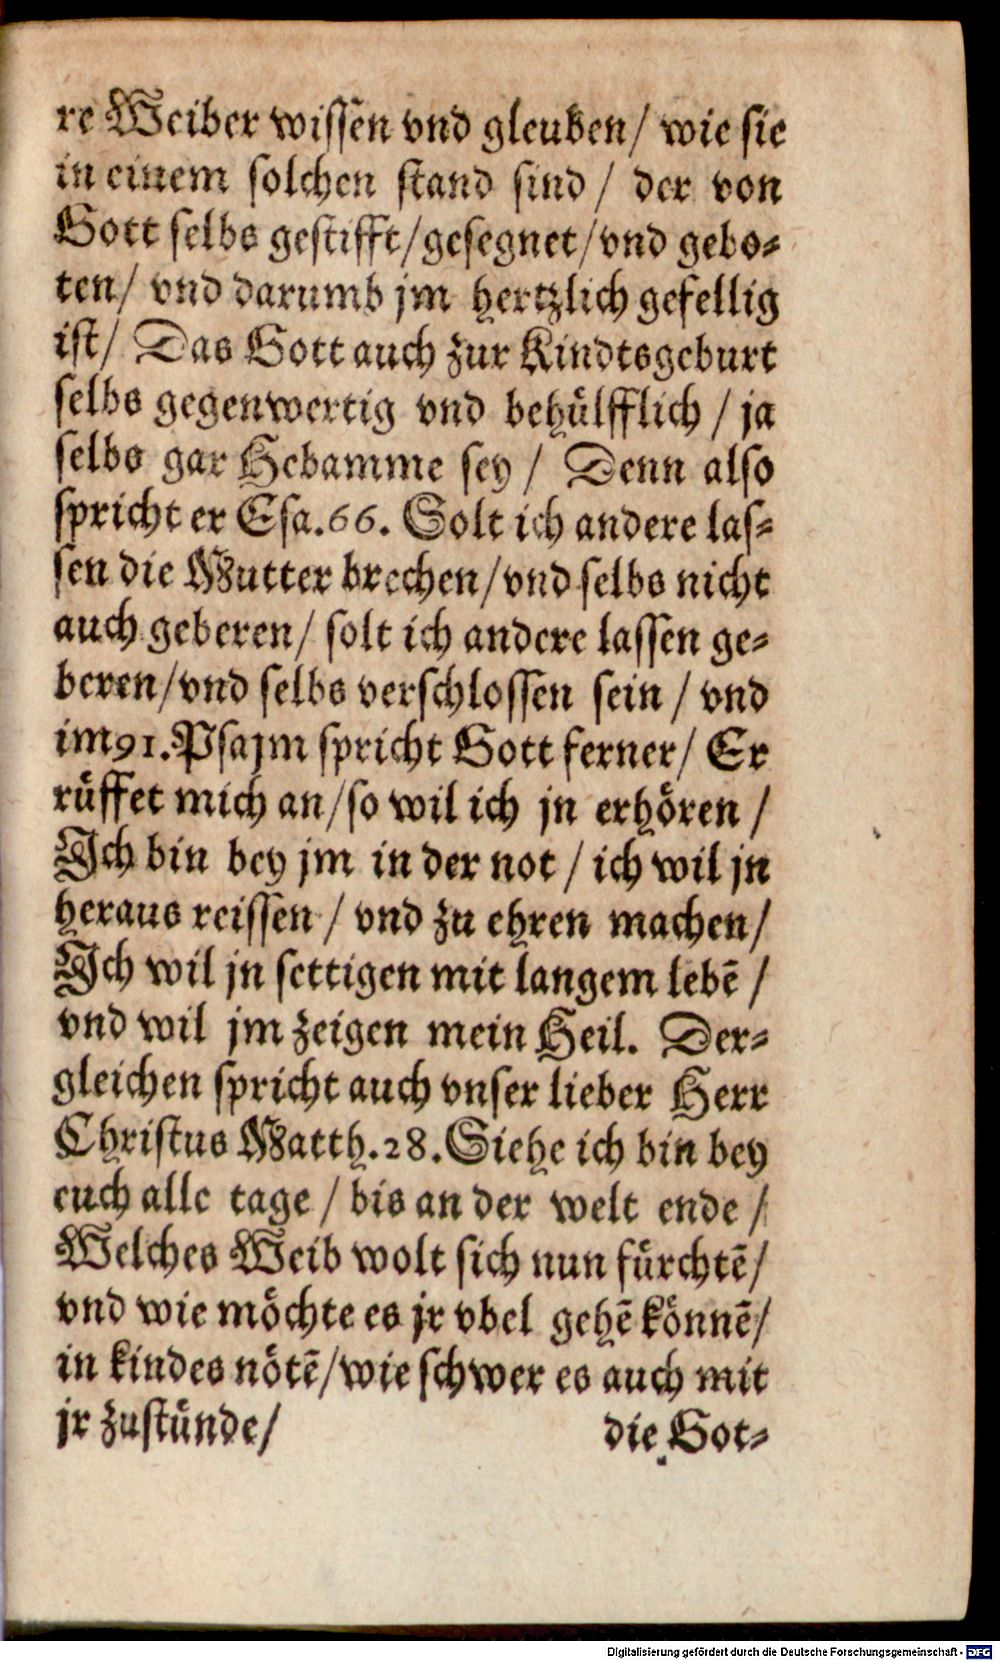 re Weiber wissen vnd gleuben/ wie sie
in einem solchen stand sind / der von
Gott selbs gestifft/gesegnet/vnd gebo⸗
ten/ vnd darumb jm hertzlich gefellig
ist/ Das Gott auch zur Kindtsgeburt
selbs gegenwertig vnd behuͤlfflich / ja
selbs gar Hebamme sey / Denn also
spricht er Esa.66. Solt ich andere las⸗
sen die Mutter brechen/vnd selbs nicht
auch geberen/ solt ich andere lassen ge⸗
beren/vnd selbs verschlossen sein / vnd
im 91. Psalm spricht Gott ferner/ Er
ruͤffet mich an/so wil ich jn erhoͤren /
Ich bin bey jm in der not / ich wil jn
heraus reissen / vnd zu ehren machen/
Ich wil jn settigen mit langem lebē /
vnd wil jm zeigen mein Heil. Der⸗
gleichen spricht auch vnser lieber Herr
Christus Matth.28. Siehe ich bin bey
euch alle tage / bis an der welt ende /
Welches Weib wolt sich nun fuͤrchtē/
vnd wie moͤchte es jr vbel gehē koͤnnē/
in kindes noͤtē/wie schwer es auch mit
jr zustuͤnde/ die Got⸗
Digitalisierung gefördert durch die Deutsche Forschungsgemeinschaft - DFG